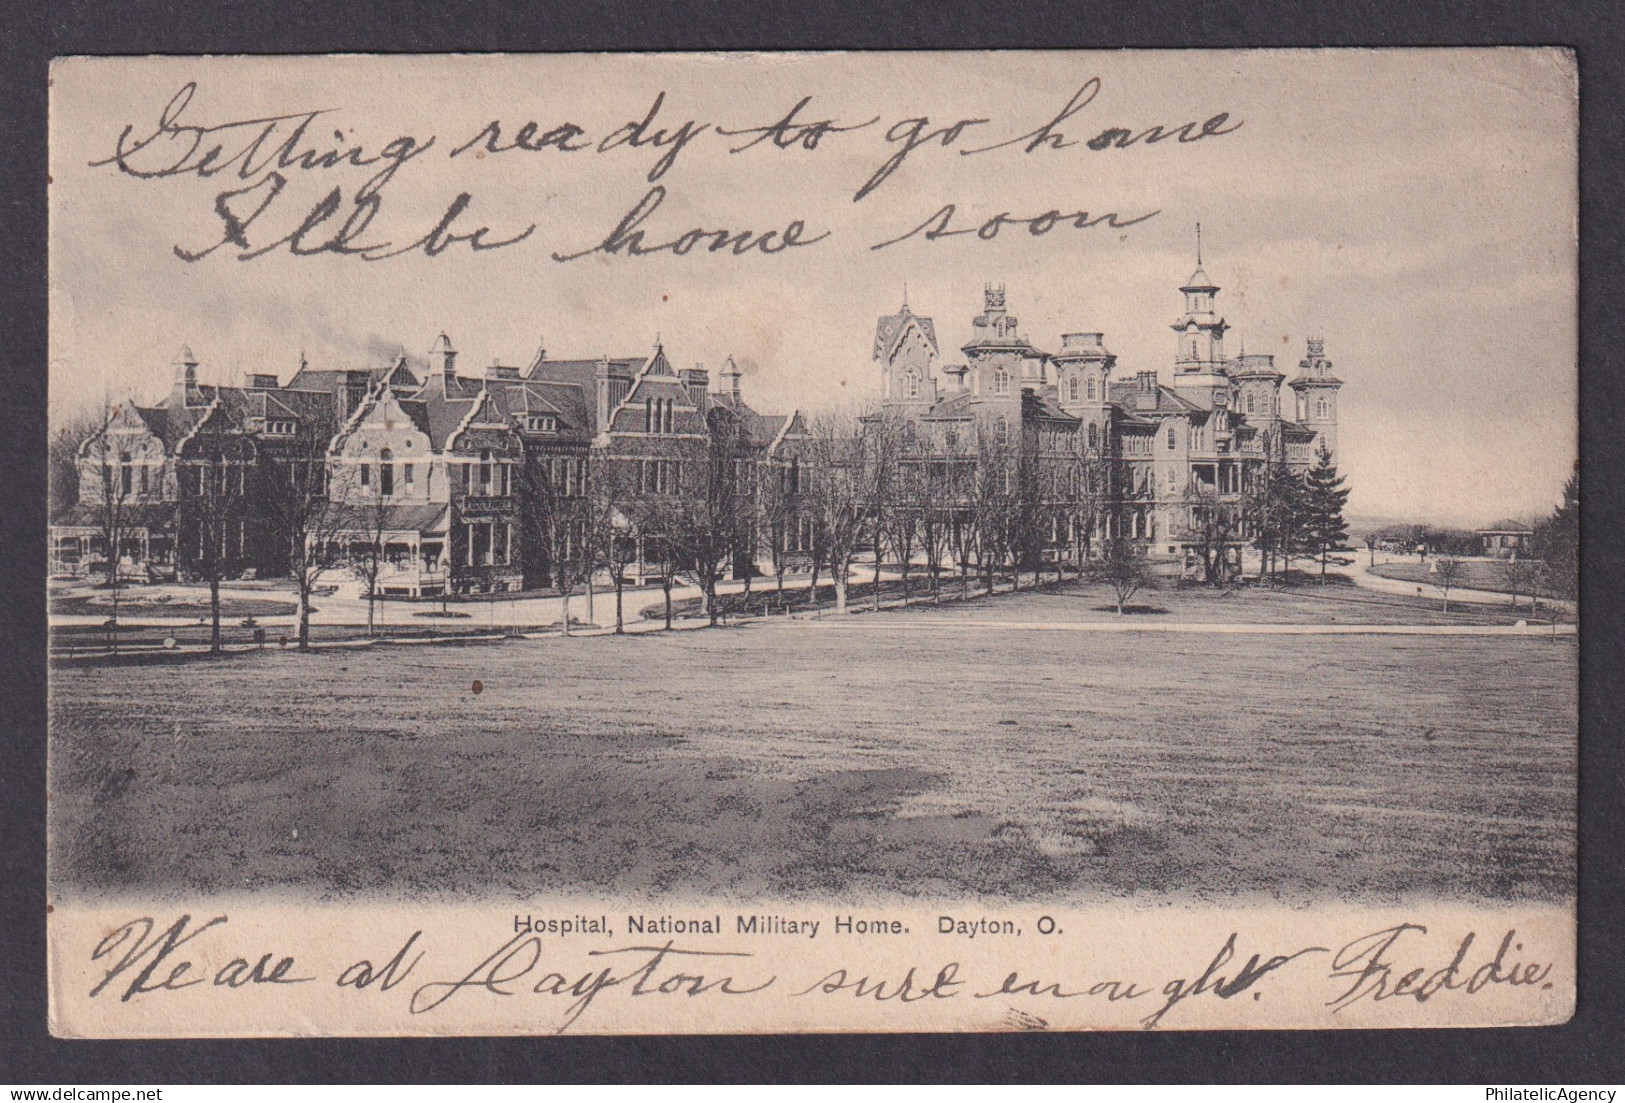 Getting ready to go home
I'll be home soon
Hospital, National Military Home. Dayton, O.
We are at Dayton surt enough. Freddie.
PhilatelicAgency